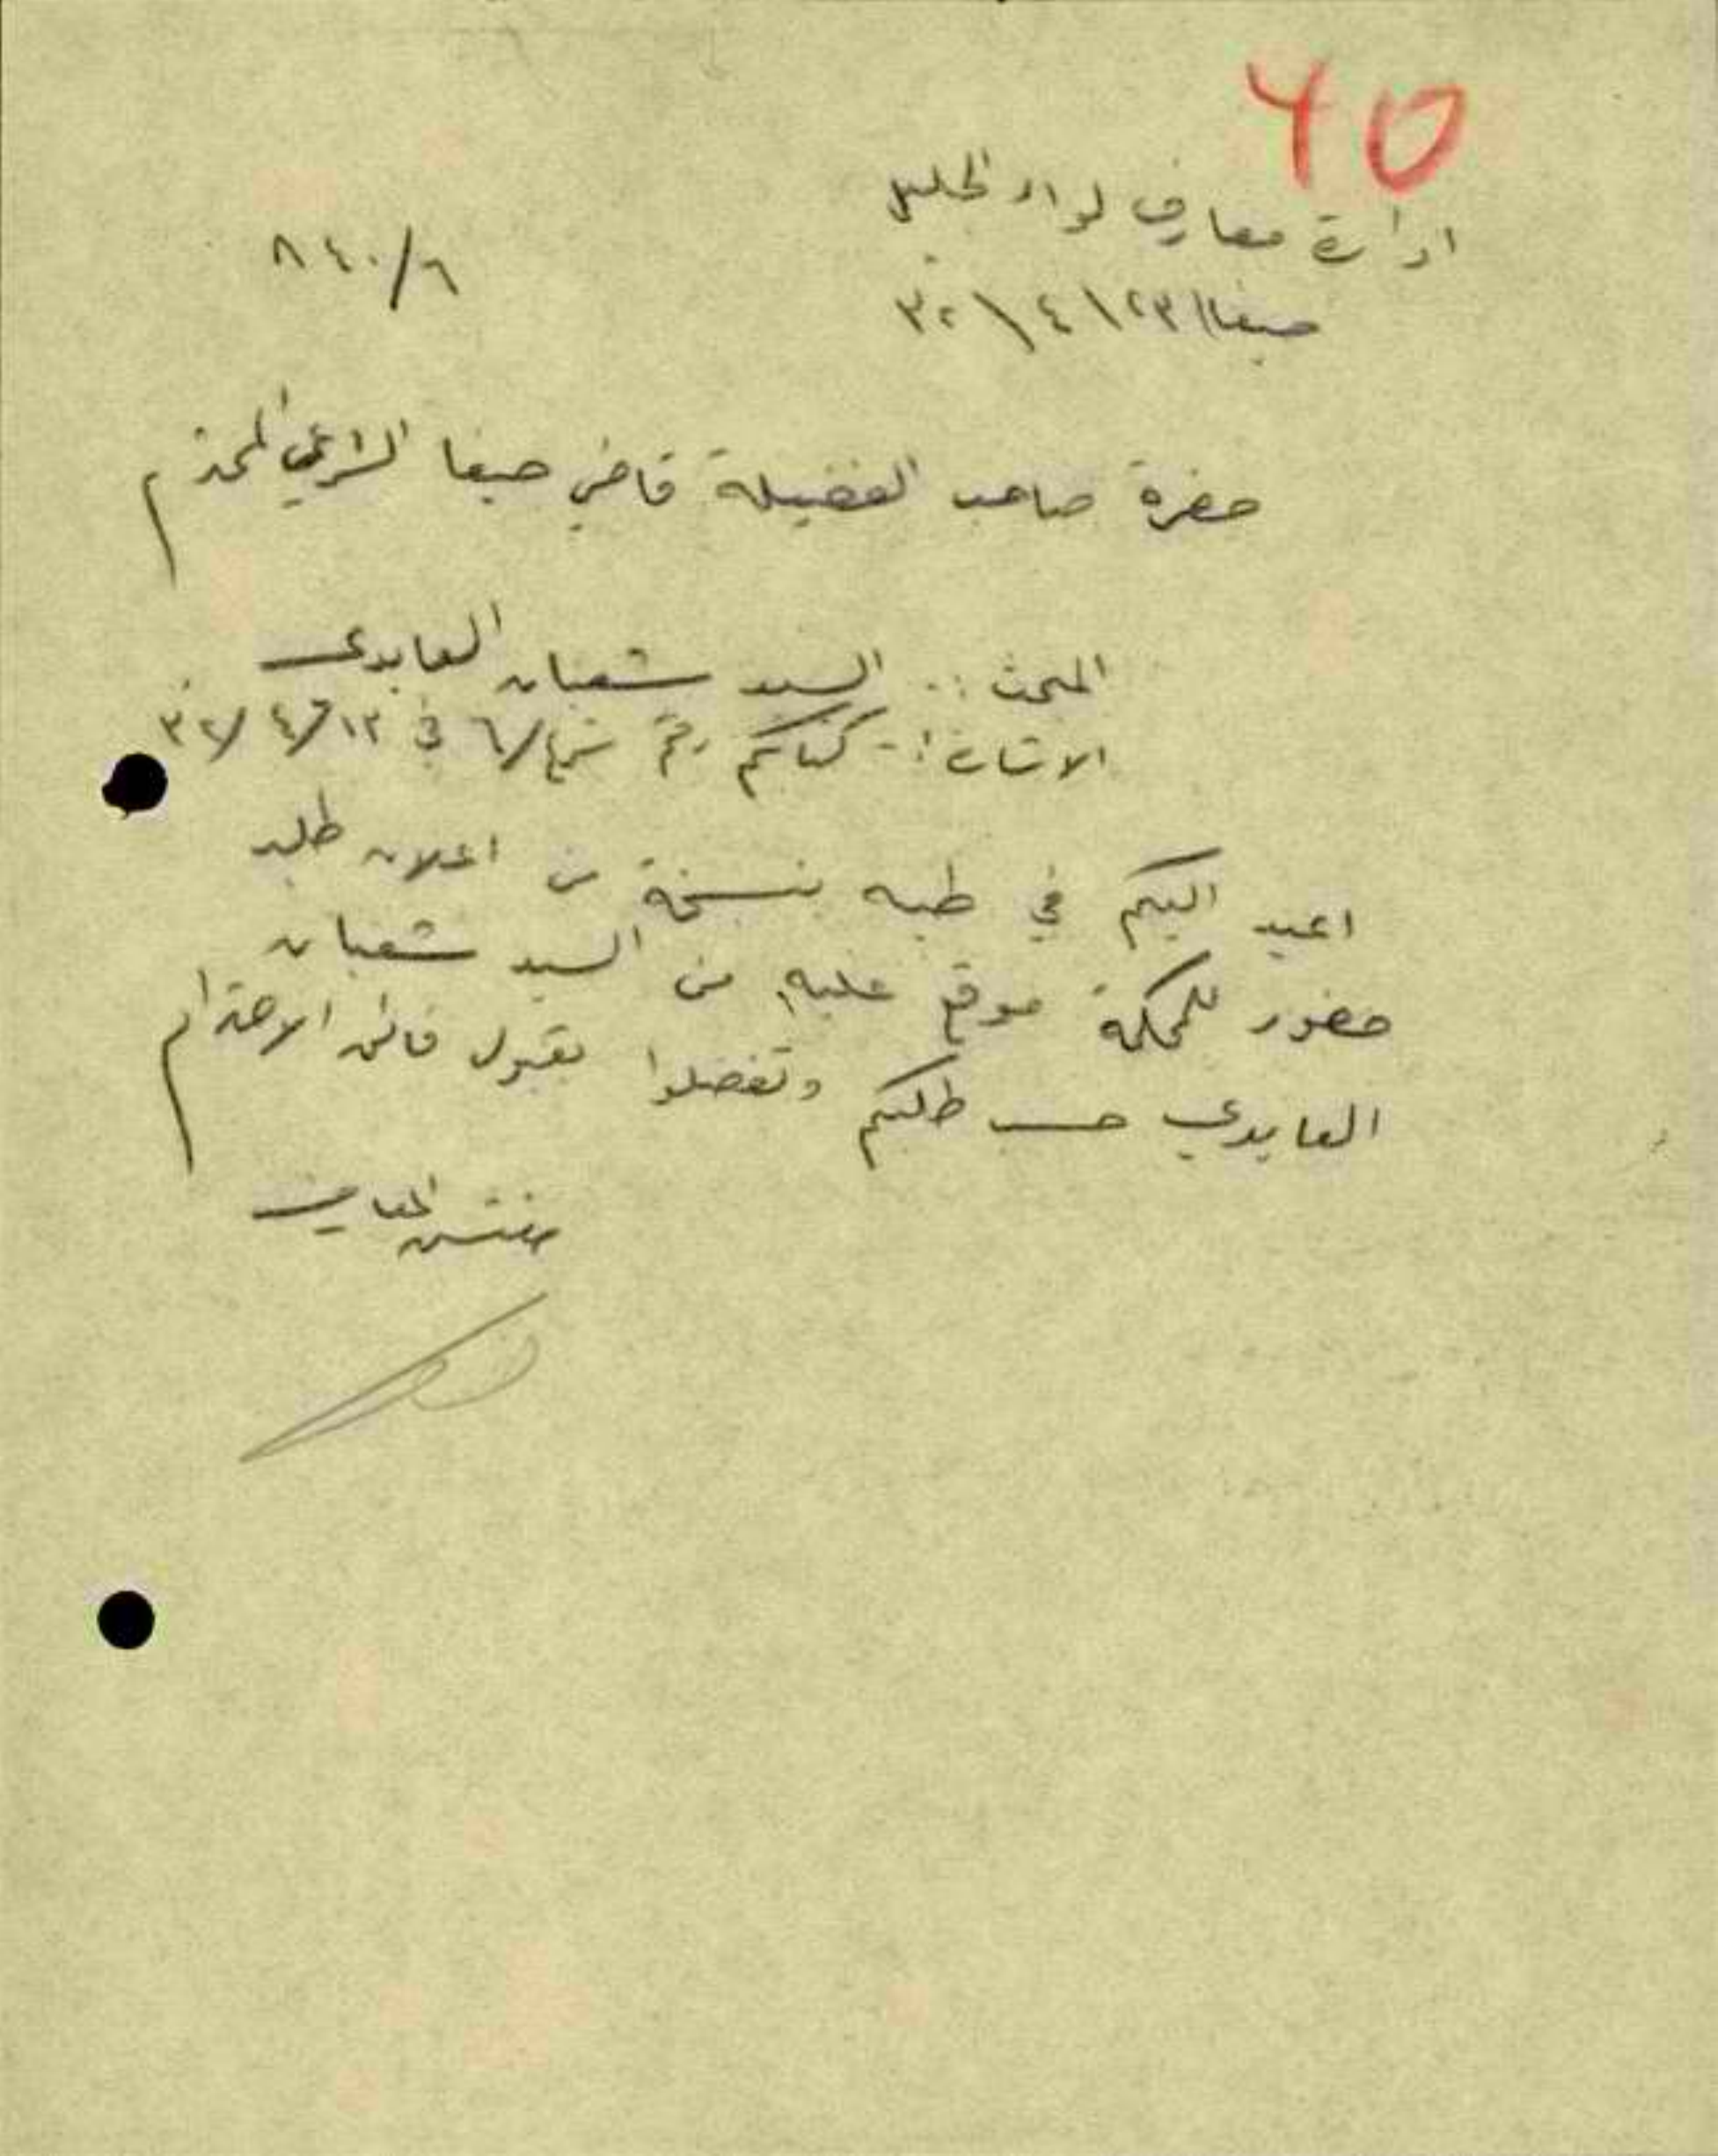 ٦٥
ادارة معارف لواء الجليل
٨٤٠/٦
حيفا ٢٣\٤\٣٢
حضرة صاحب الفضيلة قاضي حيفا الشرعي المحترم
المبحث :- السيد شعبان العابدي
الاشارة :- كتابكم رقم ٦/ في ١٢/٤/٣٢
اعيد اليكم في طيه نسخة من اعلان طلب
حضور للمحكمة موقع عليها من السيد شعبان
العابدي حسب طلبكم وتفضلوا بقبول فائق الاحترام
مفتش المعارف